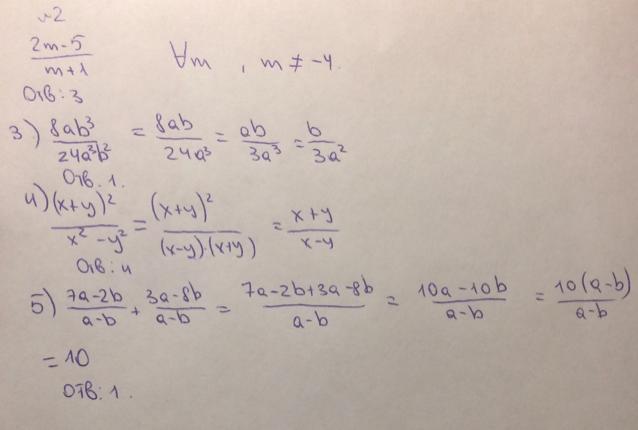 №2
(2m-5)/(m+1) ∀m , m ≠ -4.
Отв: 3
3) 8ab³/24a³b² = 8ab/24a³ = ab/3a³ = b/3a²
Отв. 1.
4) (x+y)²/(x²-y²) = (x+y)²/((x-y)·(x+y)) = (x+y)/(x-y)
Отв: 4
5) (7a-2b)/(a-b) + (3a-8b)/(a-b) = (7a-2b+3a-8b)/(a-b) = (10a-10b)/(a-b) = 10(a-b)/(a-b)
= 10
Отв: 1.